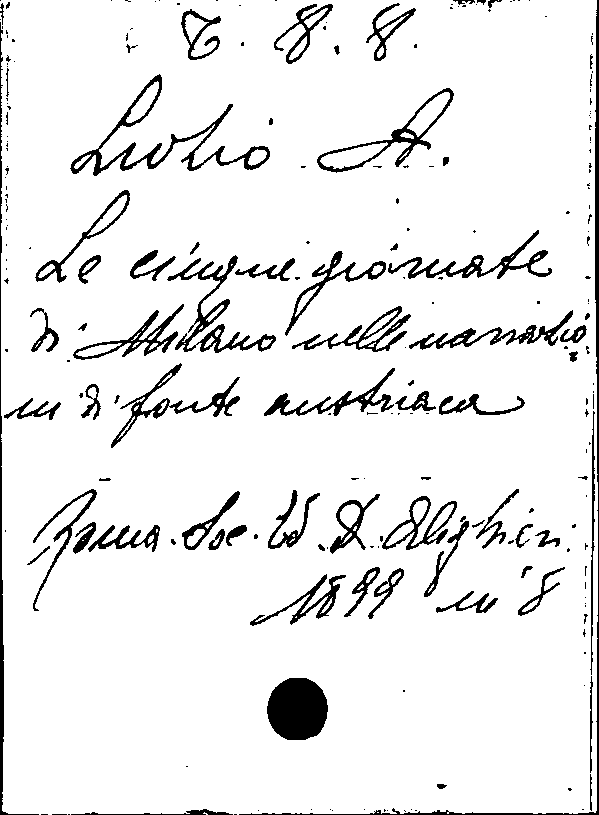 T. 8. 8.
Luzio A.
Le cinque giornate
di Milano nelle narrazio
ni di fonte austriaca
Roma. Soc. Ed. D. Alighieri
1899 in 8